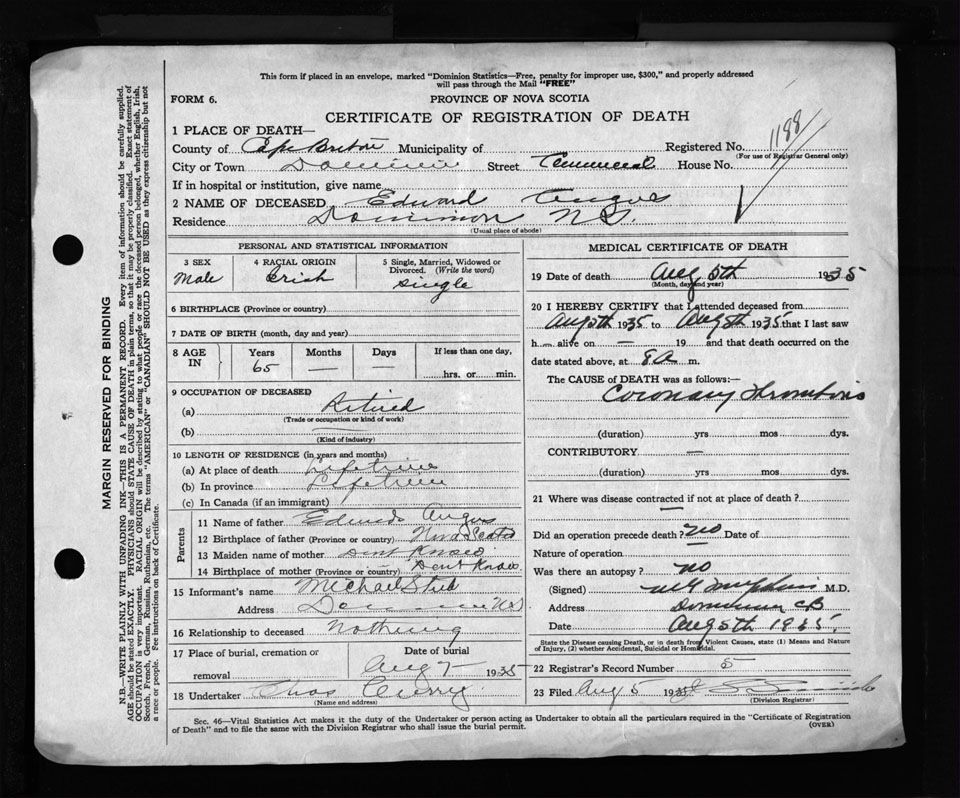 This form if placed in an envelope, marked "Dominion Statistics—Free, penalty for improper use, $300," and properly addressed
will pass through the Mail "FREE"
FORM 6.
PROVINCE OF NOVA SCOTIA
CERTIFICATE OF REGISTRATION OF DEATH
1188
1 PLACE OF DEATH—
County of Cape Breton Municipality of Registered No.
(For use of Registrar General only)
City or Town Dominion Street Commercial House No.
If in hospital or institution, give name
2 NAME OF DECEASED Edward Angus
Residence Dominion N.S.
(Usual place of abode)
PERSONAL AND STATISTICAL INFORMATION
3 SEX 4 RACIAL ORIGIN 5 Single, Married, Widowed or
Divorced. (Write the word)
Male Irish Single
6 BIRTHPLACE (Province or country)
7 DATE OF BIRTH (month, day and year)
8 AGE IN Years Months Days If less than one day,
65 — — hrs. or min.
9 OCCUPATION OF DECEASED
(a) Retired
(Trade or occupation or kind of work)
(b) —
(Kind of industry)
10 LENGTH OF RESIDENCE (in years and months)
(a) At place of death Lifetime
(b) In province Lifetime
(c) In Canada (if an immigrant)
Parents
11 Name of father Edward Angus
12 Birthplace of father (Province or country) Nova Scotia
13 Maiden name of mother Dont Know
14 Birthplace of mother (Province or country) Dont Know
15 Informant's name Michael
Address Dominion NS
16 Relationship to deceased Nothing
17 Place of burial, cremation or Date of burial
removal Aug 7 1935
18 Undertaker Chas Curry
(Name and address)
MEDICAL CERTIFICATE OF DEATH
19 Date of death Aug 5th 1935
(Month, day and year)
20 I HEREBY CERTIFY that I attended deceased from
Aug 5th 1935 to Aug 5th 1935 that I last saw
h alive on — 19 and that death occurred on the
date stated above, at 8 a m.
The CAUSE OF DEATH was as follows:—
Coronary Thrombosis
(duration) yrs mos dys.
CONTRIBUTORY —
(duration) yrs mos dys.
21 Where was disease contracted if not at place of death?
—
Did an operation precede death? no Date of
Nature of operation
Was there an autopsy? no
(Signed) M.D.
Address Dominion CB
Date Aug 5th 1935
State the Disease causing Death, or in death from Violent Causes, state (1) Means and Nature
of Injury, (2) whether Accidental, Suicidal or Homicidal.
22 Registrar's Record Number 5
23 Filed Aug 5 1935
(Division Registrar)
Sec. 46—Vital Statistics Act makes it the duty of the Undertaker or person acting as Undertaker to obtain all the particulars required in the "Certificate of Registration
of Death" and to file the same with the Division Registrar who shall issue the burial permit.
(OVER)
MARGIN RESERVED FOR BINDING
N.B.—WRITE PLAINLY WITH UNFADING INK—THIS IS A PERMANENT RECORD. Every item of information should be carefully supplied.
AGE should be stated EXACTLY. PHYSICIANS should STATE CAUSE OF DEATH in plain terms, so that it may be properly classified. Exact statement of
OCCUPATION is very important. RACIAL ORIGIN will be described by stating to what people or race the deceased person belonged, whether English, Irish,
Scotch, French, German, Russian, Ruthenian, etc. The terms "AMERICAN" or "CANADIAN" SHOULD NOT BE USED as they express citizenship but not
a race or people. Fee instructions on back of Certificate.